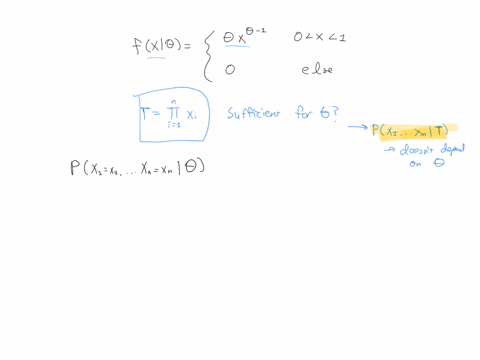 f(x|θ) = { θ x^{θ-1}   0<x<1
0   else
T = ∏_{i=1}^{n} x_i   Sufficient for θ?
→ P(x_1 ... x_n | T)
→ doesn't depend
on θ
P(X_1=x_1, ... X_n=x_n | θ)